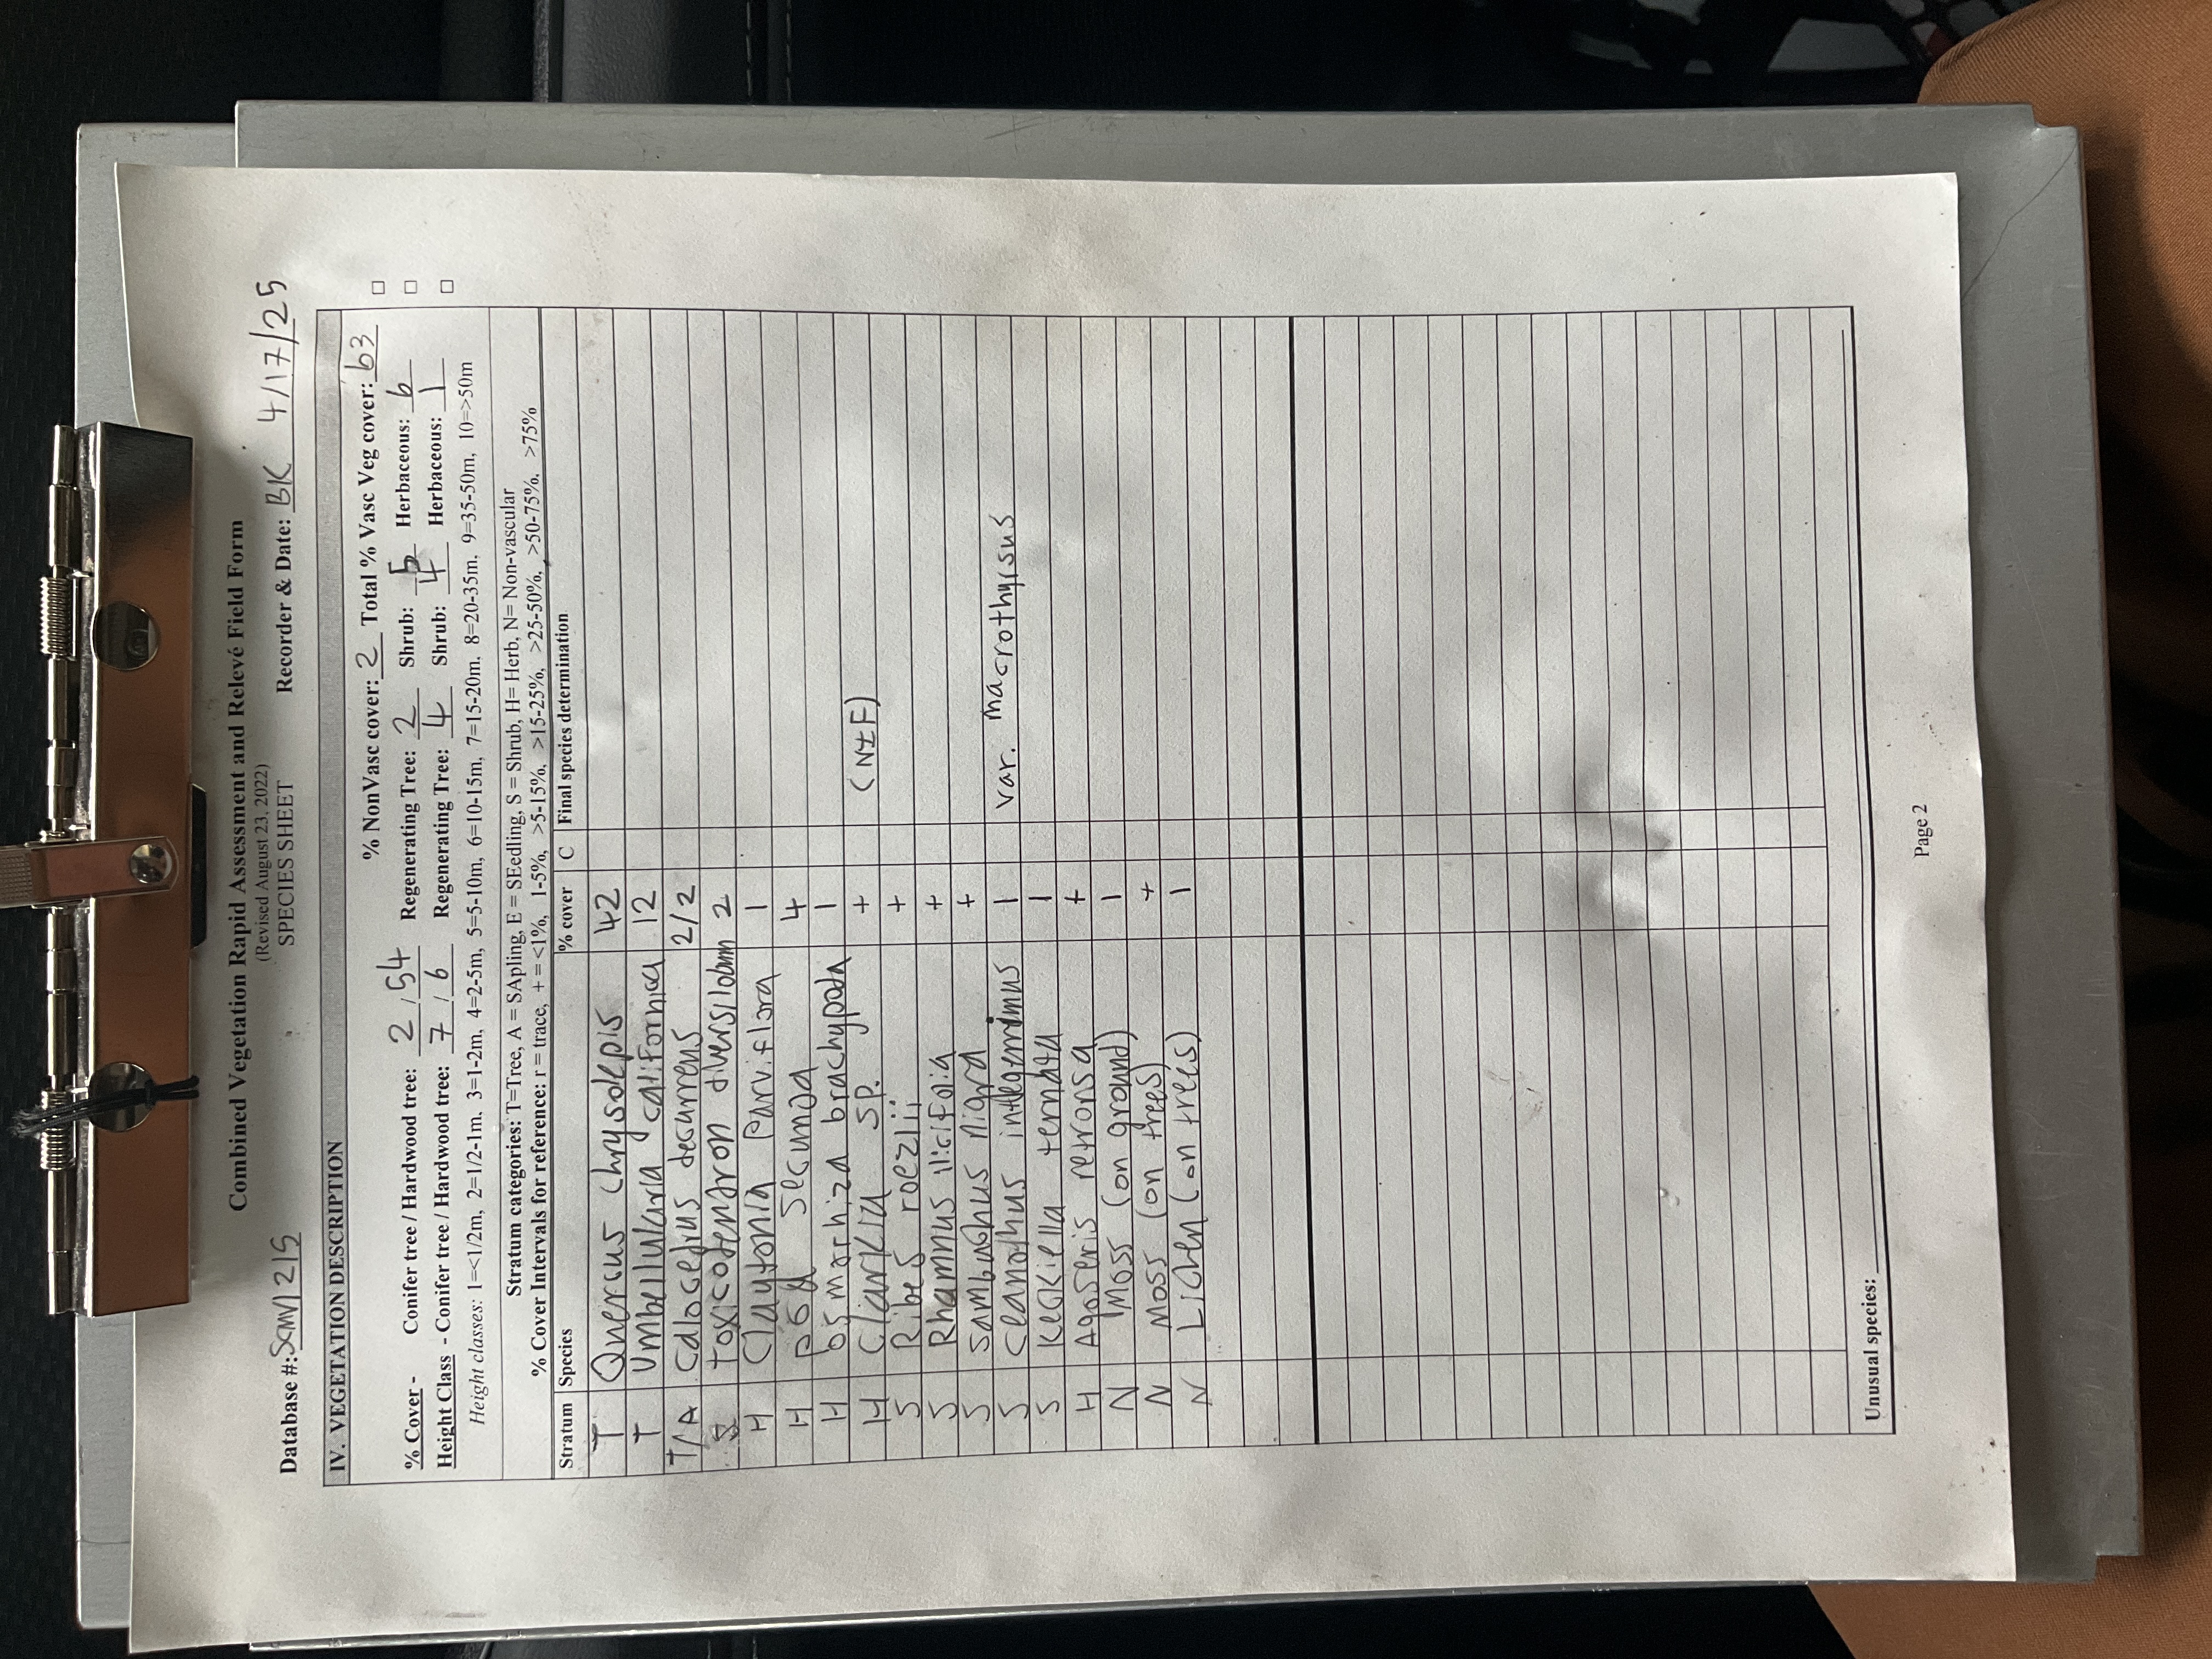 Combined Vegetation Rapid Assessment and Relevé Field Form
(Revised August 23, 2022)
SPECIES SHEET
Database #: SCMV1215 Recorder & Date: BK 4/17/25
IV. VEGETATION DESCRIPTION
% NonVasc cover: 2 Total % Vasc Veg cover: 63 □
% Cover - Conifer tree / Hardwood tree: 2 / 54 Regenerating Tree: 2 Shrub: 5 Herbaceous: 6 □
Height Class - Conifer tree / Hardwood tree: 7 / 6 Regenerating Tree: 4 Shrub: 4 Herbaceous: 1 □
Height classes: 1=<1/2m, 2=1/2-1m, 3=1-2m, 4=2-5m, 5=5-10m, 6=10-15m, 7=15-20m, 8=20-35m, 9=35-50m, 10=>50m
Stratum categories: T=Tree, A = SApling, E = SEedling, S = Shrub, H= Herb, N= Non-vascular
% Cover Intervals for reference: r = trace, + = <1%, 1-5%, >5-15%, >15-25%, >25-50%, >50-75%, >75%
Stratum Species % cover C Final species determination
T Quercus chrysolepis 42
T Umbellularia californica 12
T/A Calocedrus decurrens 2/2
S Toxicodendron diversilobum 2
H Claytonia parviflora 1
H Poa secunda 4
H Osmorhiza brachypoda 1
H Clarkia sp. + (NIF)
S Ribes roezlii +
S Rhamnus ilicifolia +
S Sambuchus nigra +
S Ceanothus integerrimus 1 var. macrothyrsus
S Keckiella ternata 1
H Agoseris retrorsa +
N Moss (on ground) 1
N Moss (on trees) +
N Lichen (on trees) 1
Unusual species:
Page 2